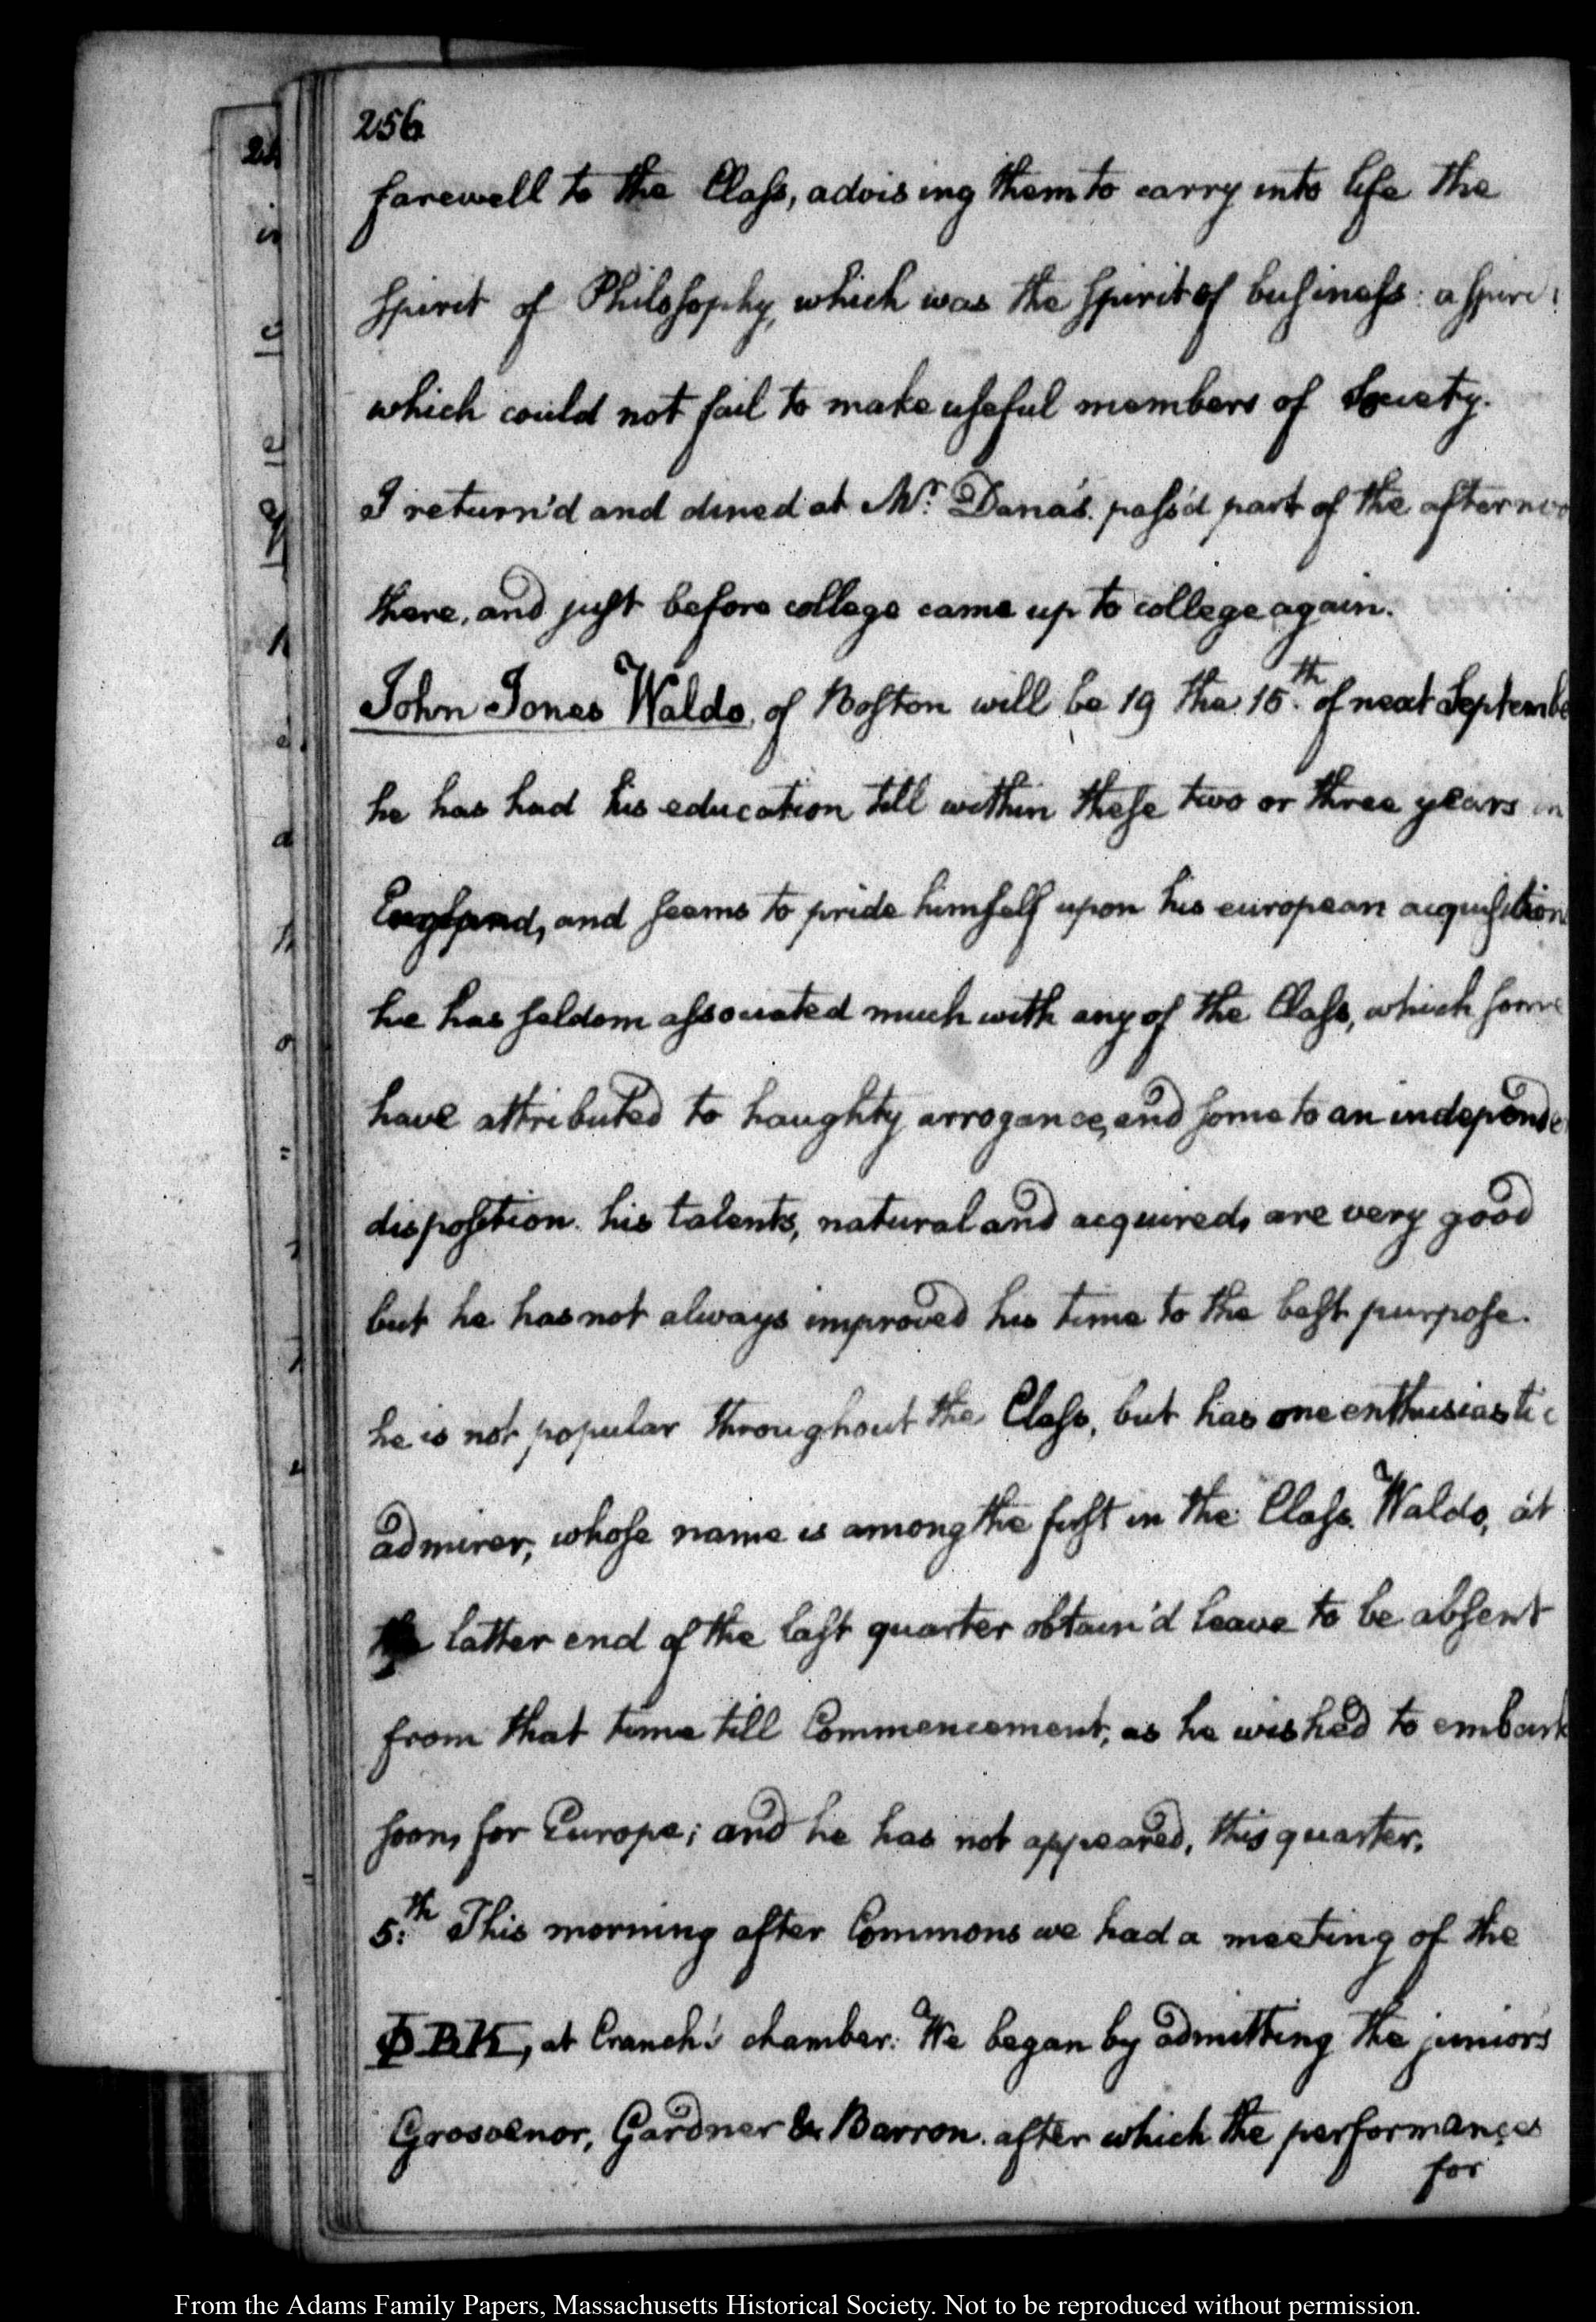 256
farewell to the Claſs, advising them to carry into life the
ſpirit of Philoſophy, which was the ſpirit of buſineſs: a ſpirit
which could not fail to make uſeful members of Society.
I return'd and dined at Mr: Dana's. paſs'd part of the afternoo
there, and juſt before college came up to college again.
John Jones Waldo, of Boſton will be 19 the 15.th of next Septembe
he has had his education till within theſe two or three years in
England, and ſeems to pride himſelf upon his european acquiſition
he has ſeldom aſsociated much with any of the Claſs, which ſome
have attributed to haughty arrogance, and ſome to an independe
dispoſition. his talents, natural and acquired, are very good
but he has not always improved his time to the beſt purpoſe.
he is not popular throughout the Claſs, but has one enthusiastic
admirer, whoſe name is among the firſt in the Claſs. Waldo, at
the latter end of the laſt quarter obtain'd leave to be abſent
from that time till Commencement, as he wished to embark
ſoon, for Europe; and he has not appeared, this quarter.
5:th This morning after Commons we had a meeting of the
ΦBK, at Cranch's chamber: We began by admitting the juniors
Grosvenor, Gardner & Barron. after which the performances
for
2
in
From the Adams Family Papers, Massachusetts Historical Society. Not to be reproduced without permission.